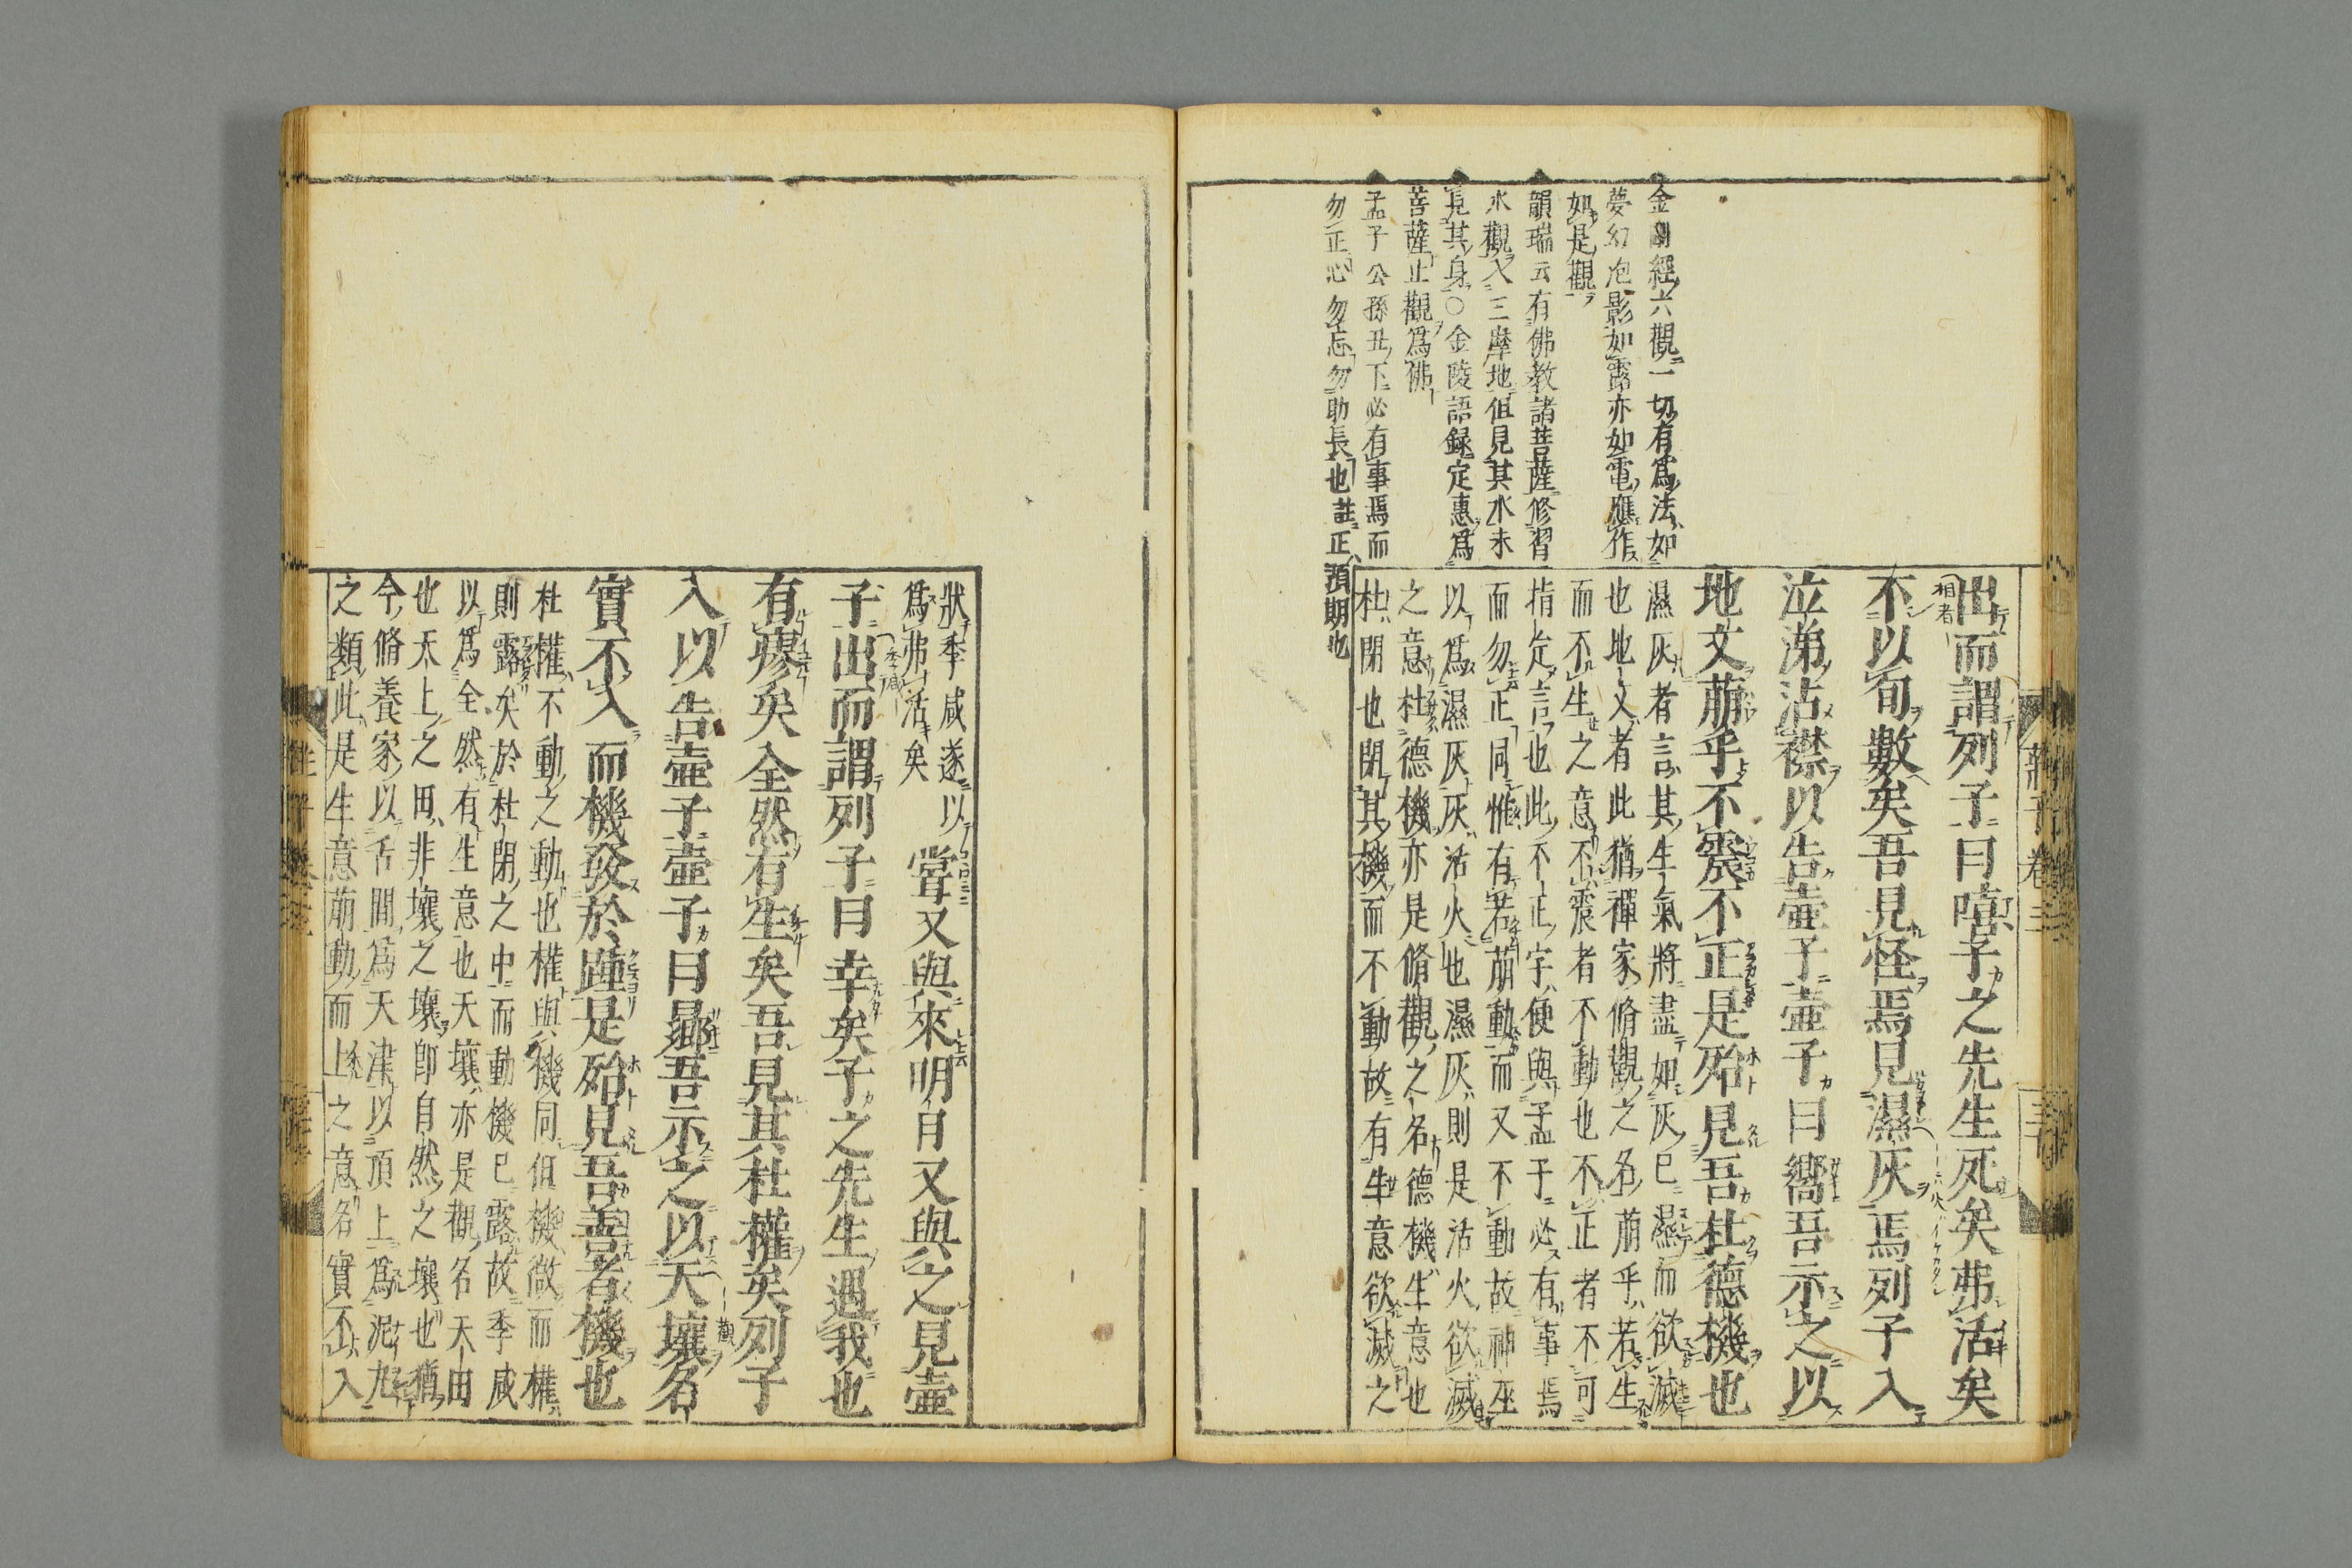 金剛經六觀一切有爲法如
夢幻泡影如露亦如電應作
如是觀
韻瑞云有佛教諸菩薩修習
水觀入三摩地但見其水未
見其身○金陵語録定惠爲
菩薩止觀爲佛
孟子公孫丑下必有事焉而
勿正心勿忘勿助長也註正
預期也
莊子卷三
出而謂列子曰嘻子之先生死矣弗活矣
相者
不以旬數矣吾見怪焉見濕灰焉列子入
泣涕沾襟以告壺子壺子曰嚮吾示之以
地文萠乎不震不正是殆見吾杜德機也
濕灰者言其生氣將盡如灰已濕而欲滅
也地文者此猶禪家脩觀之名萠乎若生
而不生之意不震者不動也不正者不可
指定言也此不正字便與孟子必有事焉
而勿正同惟有若萠動而又不動故神巫
以爲濕灰灰活火也濕灰則是活火欲滅
之意杜德機亦是脩觀之名德機生意也
杜閉也閉其機而不動故有生意欲滅之
狀季咸遂以
爲弗活矣
嘗又與來明日又與之見壺
子出而謂列子曰幸矣子之先生遇我也
季咸
有瘳矣全然有生矣吾見其杜權矣列子
入以告壺子壺子曰鄉吾示之以天壤名
實不入而機發於踵是殆見吾善者機也
杜權不動之動也權與機同但機微而權
則露矣於杜閉之中而動機已露故季咸
以爲全然有生意也天壤亦是觀名天田
也天上之田非壤之壤即自然之壤也猶
今脩養家以舌間爲天津以頂上爲泥丸
之類此是生意萠動而上之意名實不入